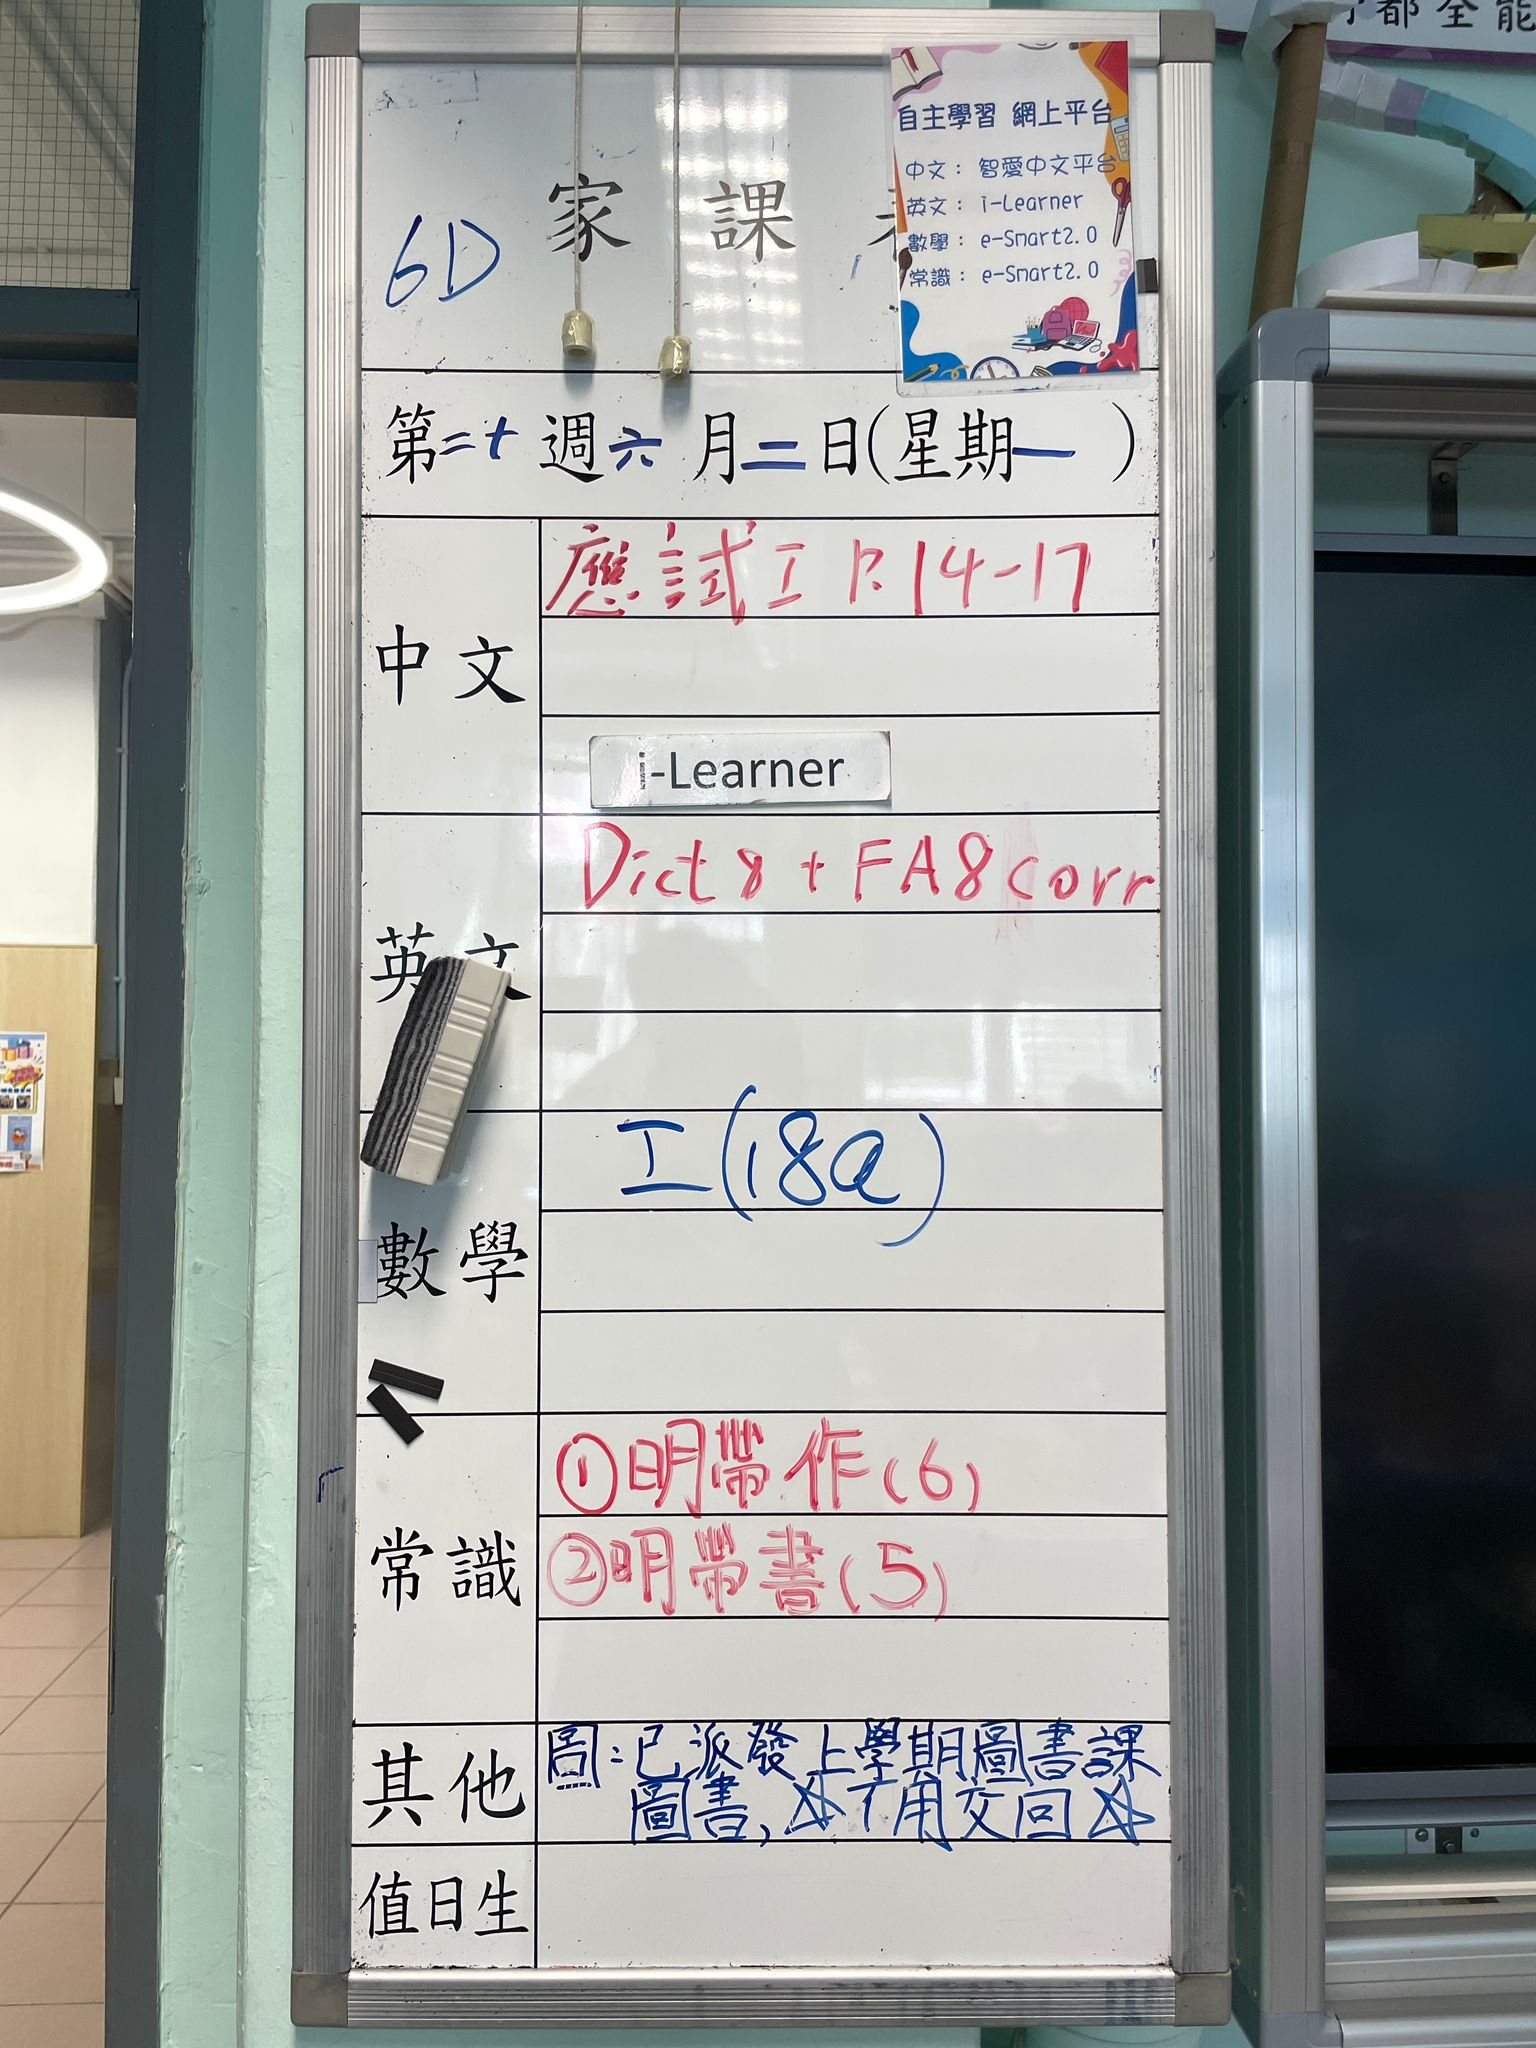 都全能
自主學習 網上平台
中文： 智愛中文平台
英文： i-Learner
數學： e-Smart2.0
常識： e-Smart2.0
6D
家 課
第二十週六月二日(星期一 )
中文
應試工 P.14-17
i-Learner
英文
Dict 8 + FA8 corr
數學
工(18a)
常識
①明帶作(6)
②明帶書(5)
其他
圖:已派發上學期圖書課
圖書,☆不用交回☆
值日生